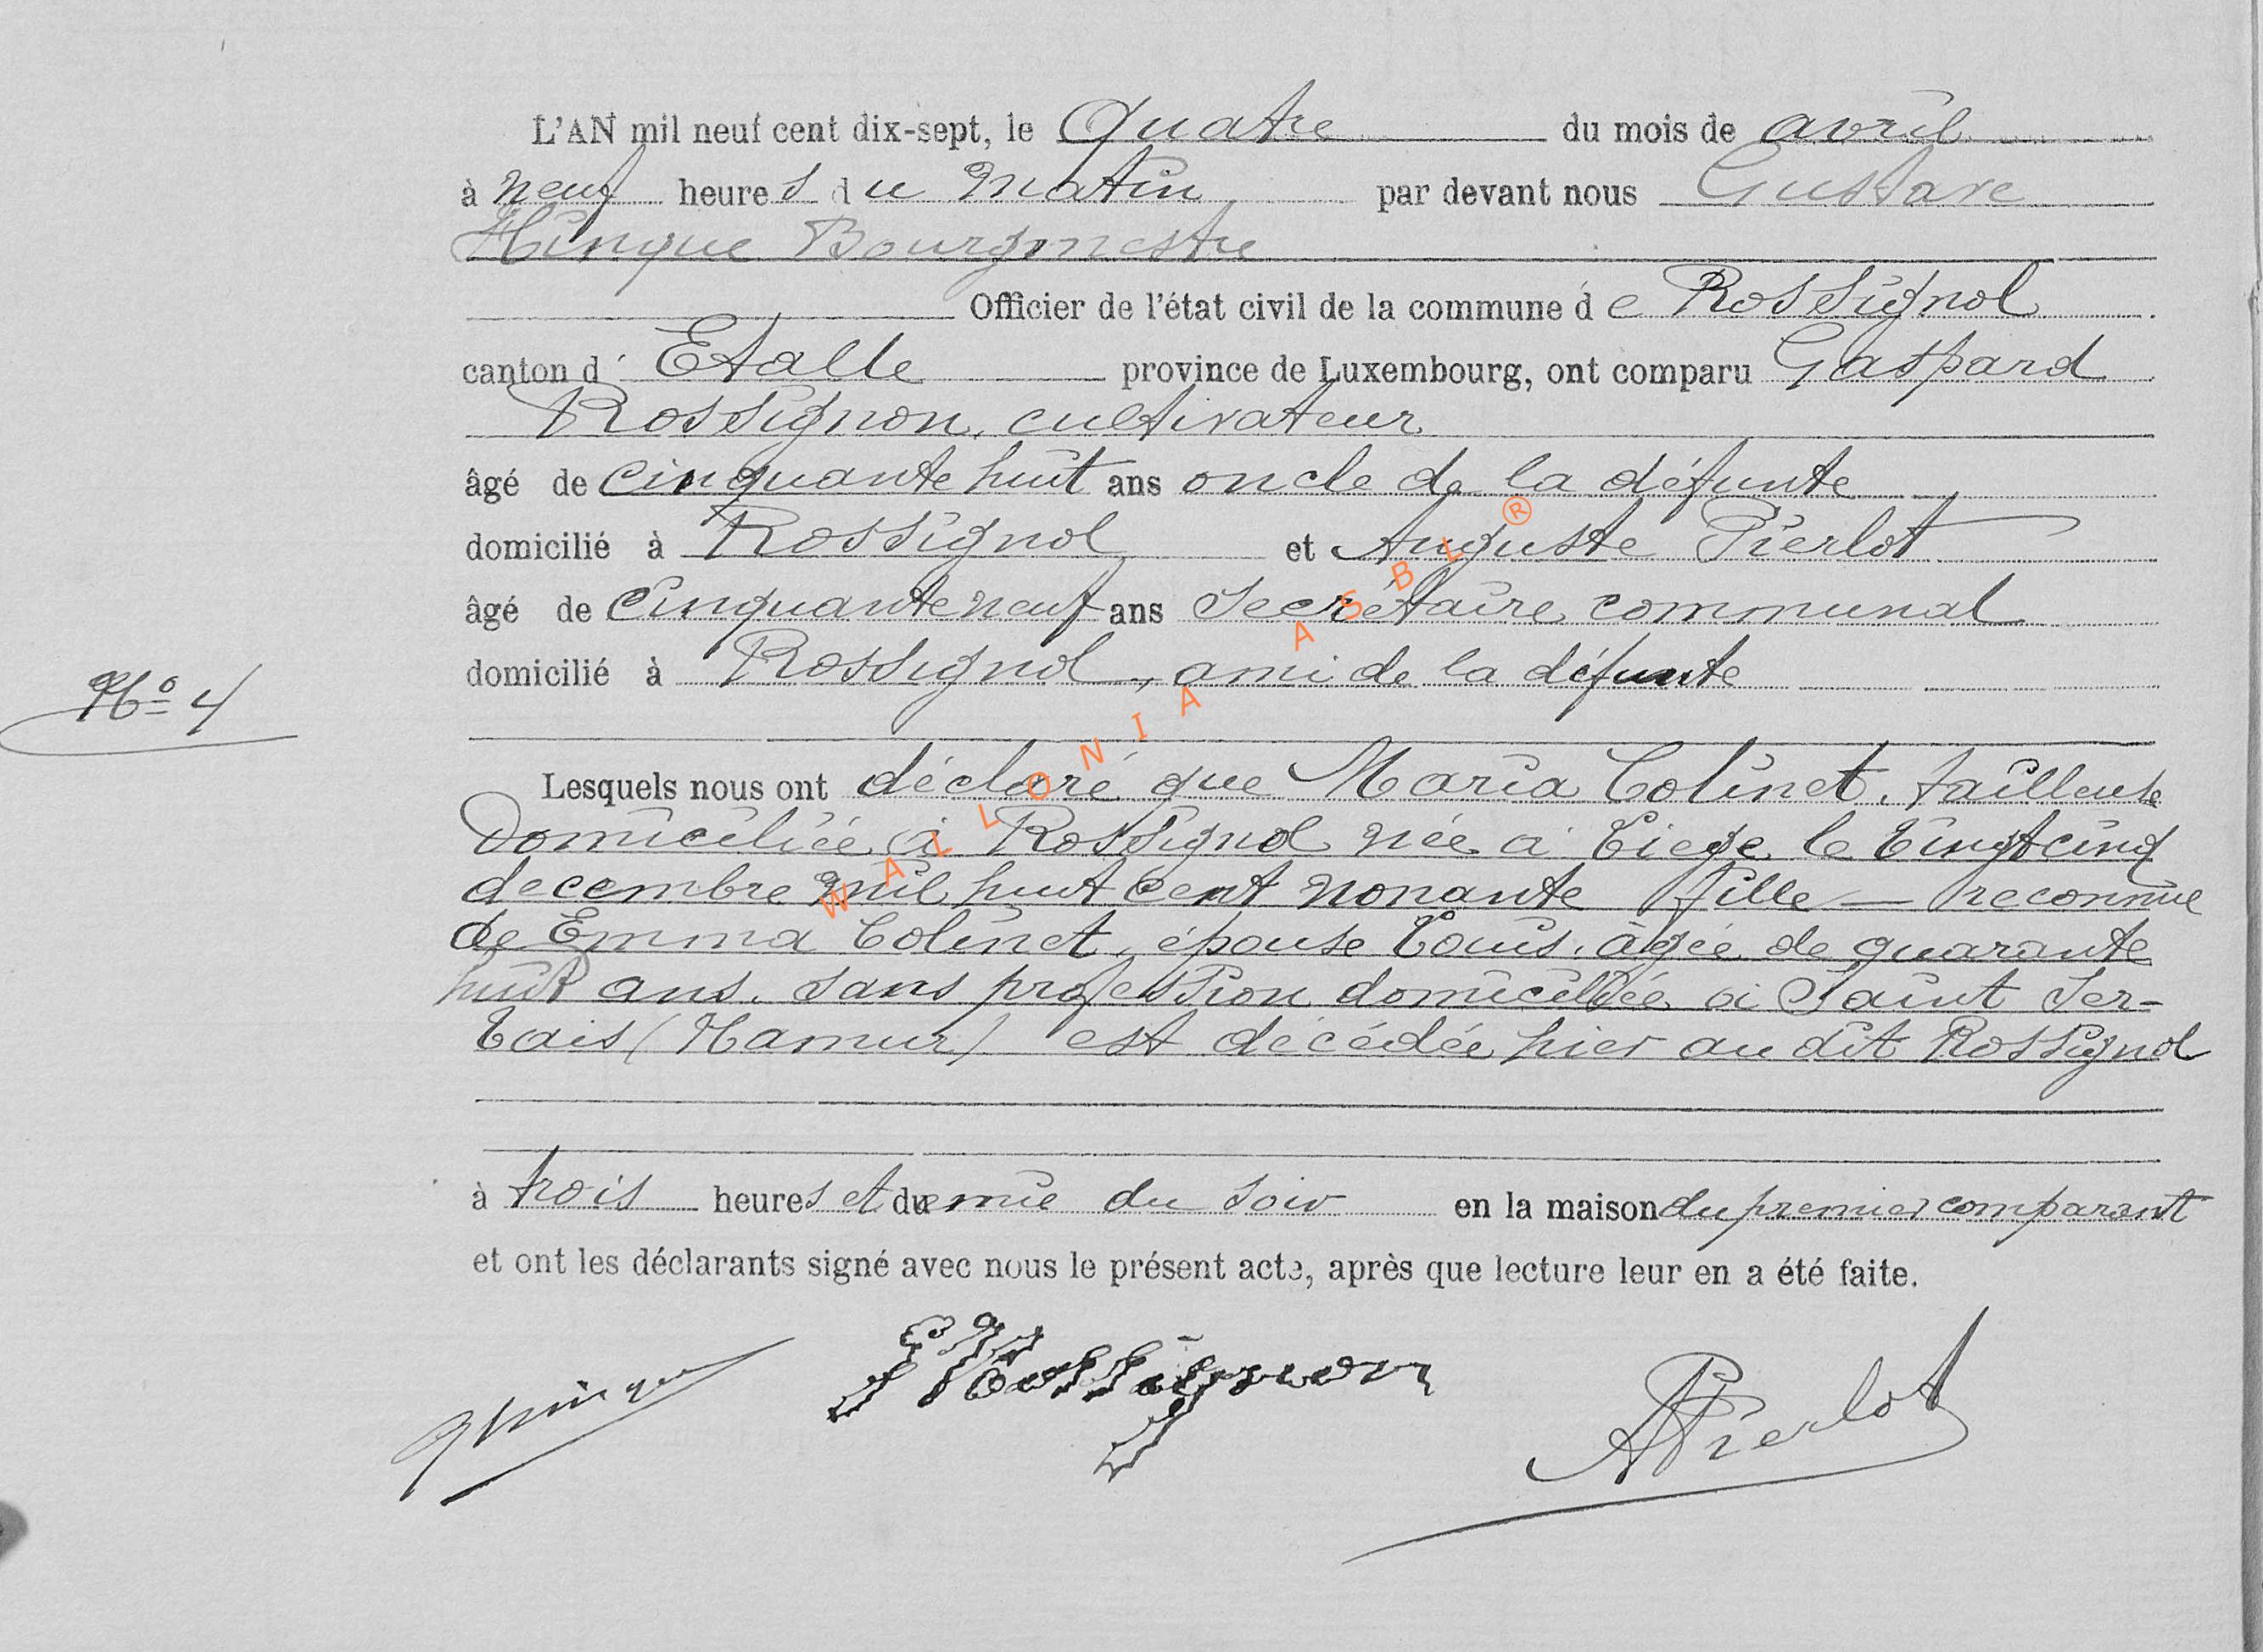 L'AN mil neuf cent dix-sept, le Quatre du mois de avril
à neuf heures du matin par devant nous Gustave
Hinque Bourgmestre
Officier de l'état civil de la commune de Rossignol
canton d' Etalle province de Luxembourg, ont comparu Gaspard
Rossignon, cultivateur
âgé de cinquante huit ans oncle de la défunte
domicilié à Rossignol et Auguste Pierlot
âgé de cinquante neuf ans Secrétaire communal
domicilié à Rossignol, ami de la défunte
No 4
Lesquels nous ont déclaré que Maria Colinet, tailleuse
domiciliée à Rossignol née à Liege le vingt cinq
decembre mil huit cent nonante fille — reconnue
de Emma Colinet, épouse Louis, âgée de quarante
huit ans, sans profession domiciliée à Saint Ser-
vais (Namur) est décédée hier au dit Rossignol
à trois heures et demie du soir en la maison du premier comparant
et ont les déclarants signé avec nous le présent acte, après que lecture leur en a été faite.
Hinque G Rossignon APierlot
WALLONIA ASBL ®